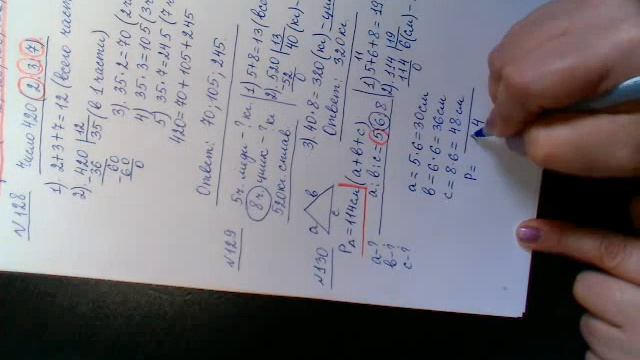 N128 Число 420 (2; 3; 7)
1) 2+3+7=12 (всего част
2) 420 | 12
-36 35 (в 1 части)
60
-60
0
3) 35·2=70 (2 ч
4) 35·3=105 (3 ч
5) 35·7=245 (7 ч
420=70+105+245
Ответ: 70; 105; 245.
N129 5ч. меди - ? кг
8ч цинк - ? кг
520 кг сплав
1) 5+8=13 (всо
2) 520 | 13
-52 40 (кг) -
0
3) 40·8=320 (кг) - цин
Ответ: 320 кг
N130 a b c
P△=114см (a+b+c)
a:b:c=5:6:8
a-?
b-?
c-?
1) 5+6+8=19
2) 114 | 19
114 6 (см) -
0
a=5·6=30см
b=6·6=36см
c=8·6=48см
P= 4